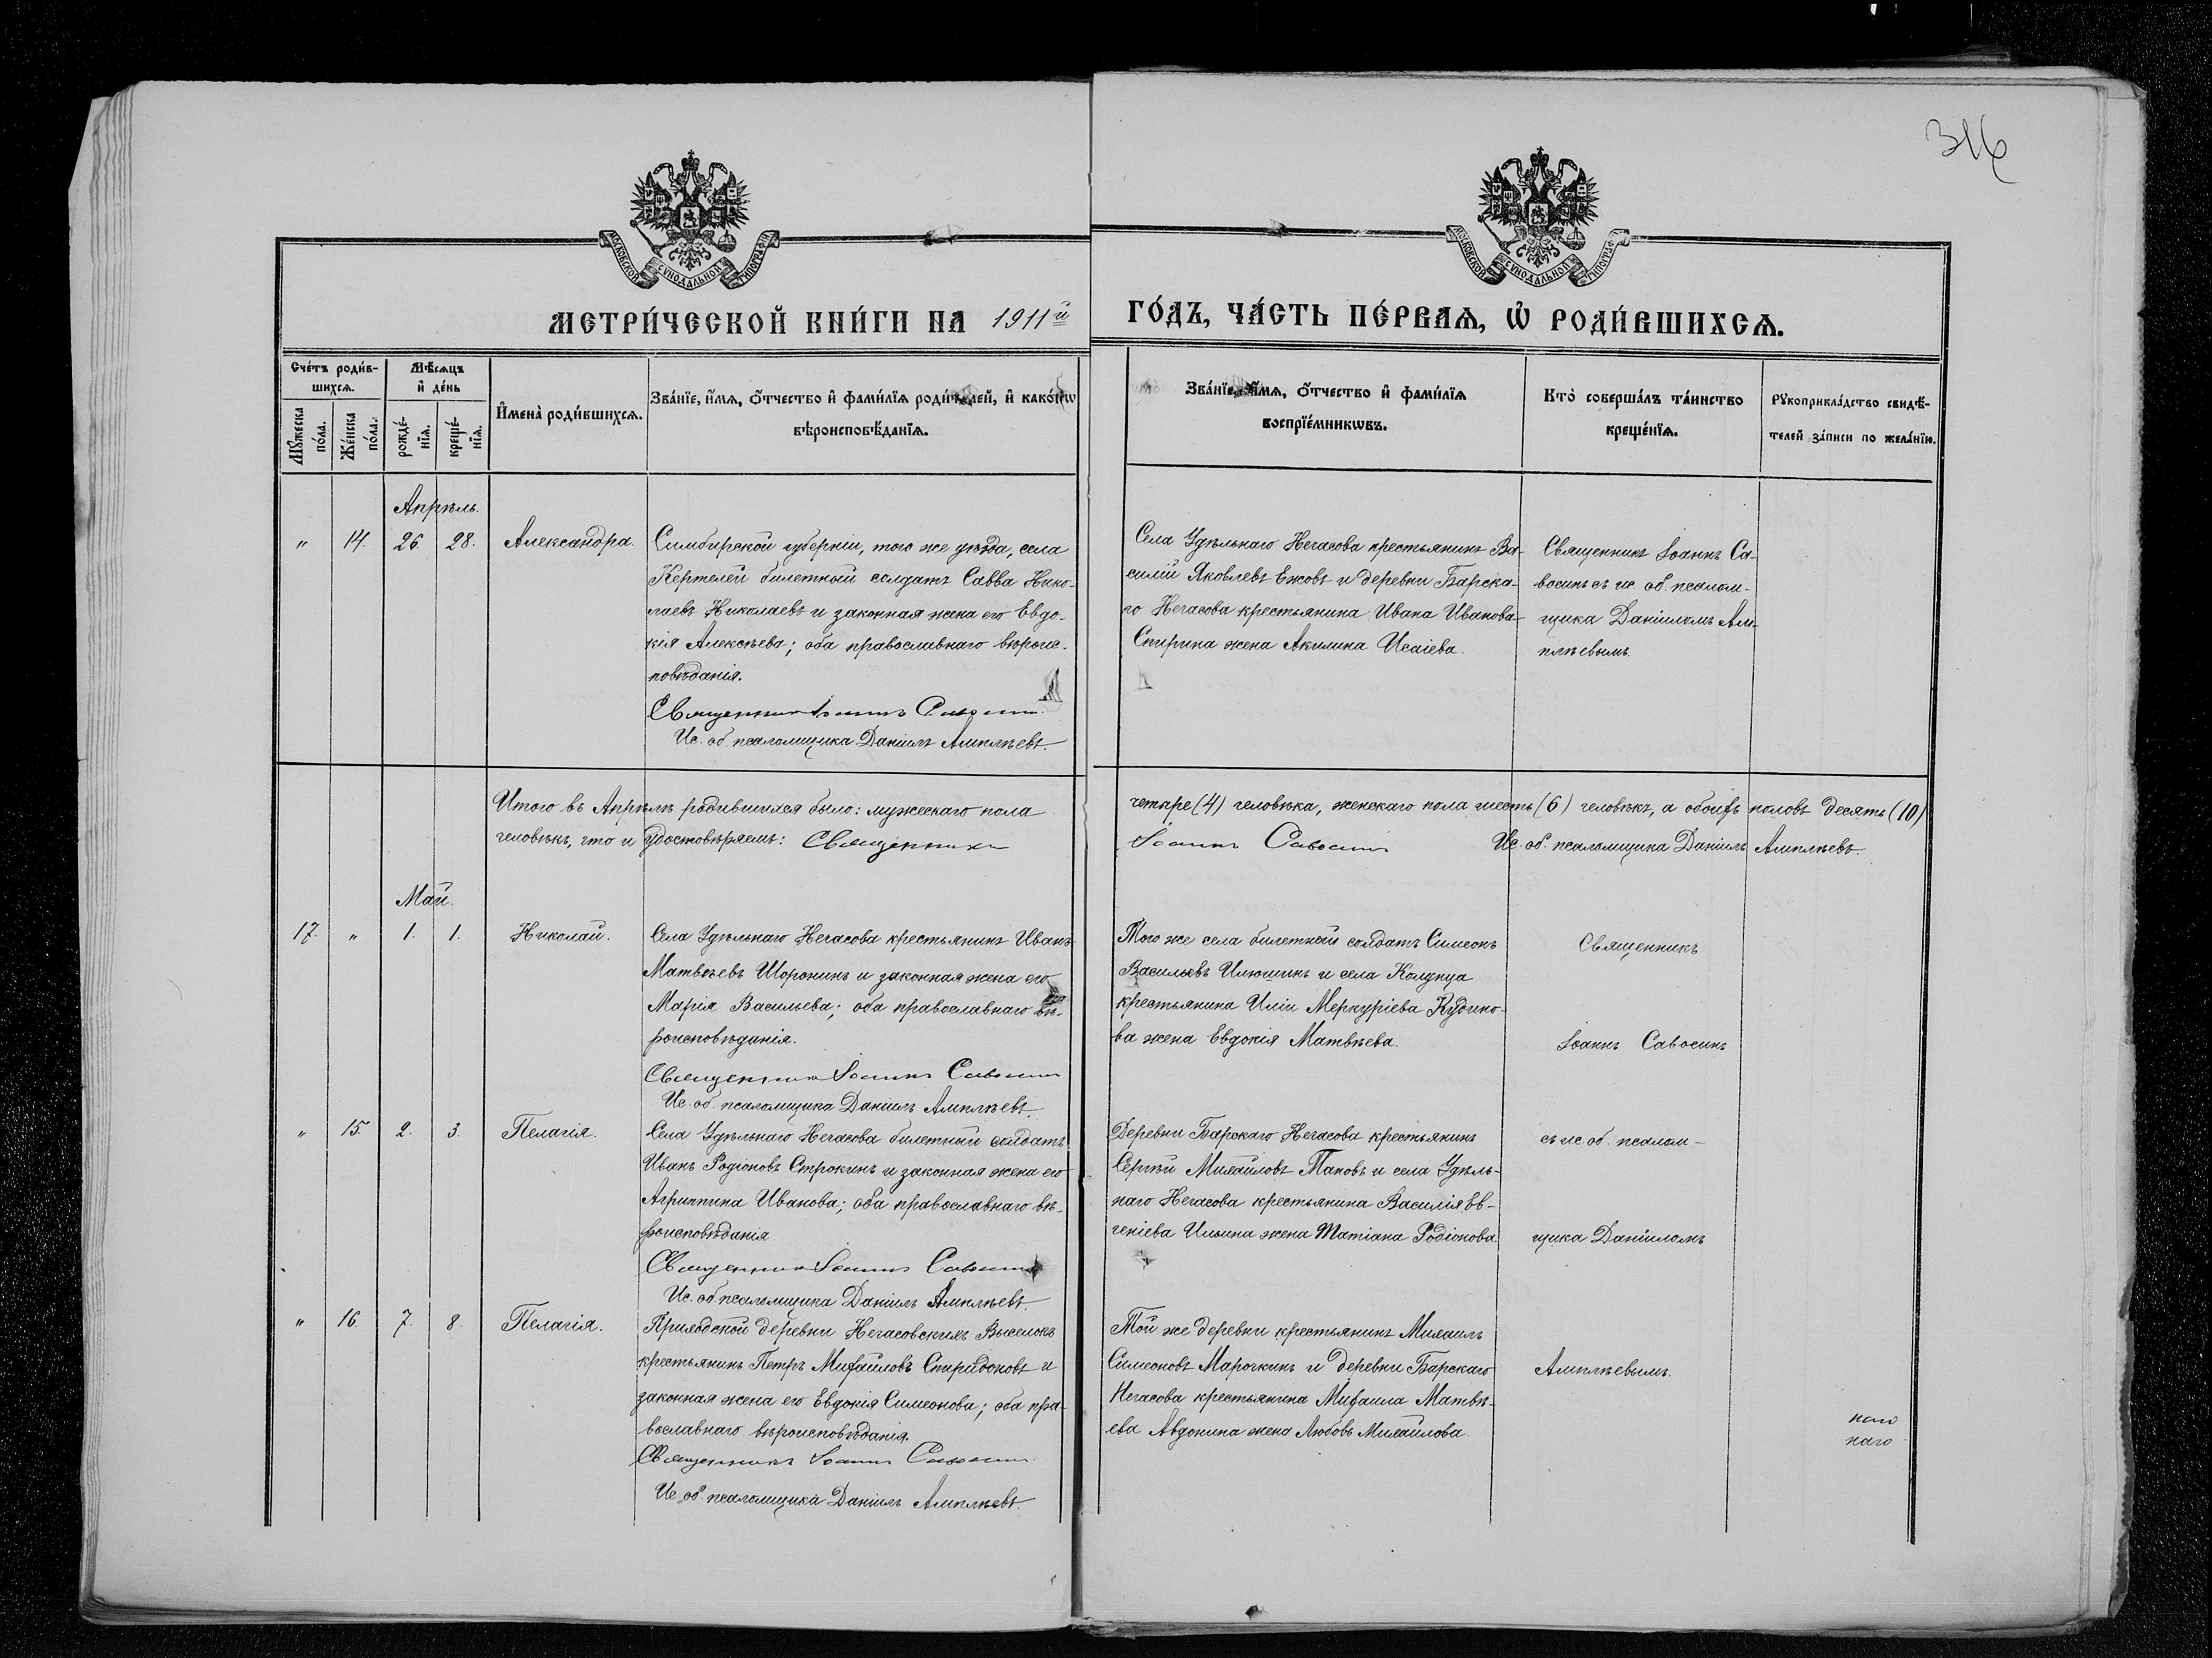 316
МОСКОВСКОЙ СѴНОДАЛЬНОЙ ТИПОГРАФІИ
МОСКОВСКОЙ СѴНОДАЛЬНОЙ ТИПОГРАФІИ
МЕТРИ́ЧЕСКОЙ КНИ́ГИ НА 1911й
ГО́ДЪ, ЧА́СТЬ ПЕ́РВАѦ, Ѡ҆ РОДИ́ВШИХСѦ.
Сче́тъ роди́в-
шихсѧ.
Мꙋ́жеска по́ла.
Же́нска по́ла.
Мѣ́сѧцъ
и҆ де́нь
рожде́-нїѧ.
креще́-нїѧ.
И҆мена̀ роди́вшихсѧ.
Зва́нїе, и҆́мѧ, ѻ҆́тчество и҆ фами́лїѧ роди́телей, и҆ како́гѡ
вѣроисповѣ́данїѧ.
Зва́нїе, и҆́мѧ, ѻ҆́тчество и҆ фами́лїѧ
воспрїе́мникѡвъ.
Кто̀ соверша́лъ та́инство
креще́нїѧ.
Рꙋкоприкла́дство свидѣ́-
телей за́писи по жела́нїю.
Апрѣль.
" 14. 26. 28. Александра.
Симбирской губерніи, того же уѣзда, села
Кертелей билетный солдатъ Савва Нико-
лаевъ Николаевъ и законная жена его Евдо-
кія Алексѣева; оба православнаго вѣроис-
повѣданія.
Священникъ Іоаннъ Савосинъ
Ис. об. псаломщика Даніилъ Амплѣевъ.
Села Удѣльнаго Нечасова крестьянинъ Ва-
силій Яковлевъ Ежовъ и деревни Барска-
го Нечасова крестьянина Ивана Иванова
Спирина жена Акилина Исаіева.
Священникъ Іоаннъ Са-
восинъ съ ис. об. псалом-
щика Даніиломъ Ам-
плѣевымъ.
Итого въ Апрѣлѣ родившихся было: мужескаго пола
четыре (4) человѣка, женскаго пола шесть (6) человѣкъ, а обоихъ половъ десять (10)
человѣкъ, что и удостовѣряемъ: Священникъ
Іоаннъ Савосинъ Ис. об. псаломщика Даніилъ Амплѣевъ.
Май.
17. " 1. 1. Николай.
Села Удѣльнаго Нечасова крестьянинъ Иванъ
Матвѣевъ Шоронинъ и законная жена его
Марія Васильева; оба православнаго вѣ-
роисповѣданія.
Священникъ Іоаннъ Савосинъ
Ис. об. псаломщика Даніилъ Амплѣевъ.
Того же села билетный солдатъ Симеонъ
Васильевъ Илюшинъ и села Колунца
крестьянина Иліи Меркуріева Кудино-
ва жена Евдокія Матвѣева.
Священникъ
Іоаннъ Савосинъ
" 15. 2. 3. Пелагія.
Села Удѣльнаго Нечасова билетный солдатъ
Иванъ Родіоновъ Строкинъ и законная жена его
Агриппина Иванова; оба православнаго вѣ-
роисповѣданія.
Священникъ Іоаннъ Савосинъ
Ис. об. псаломщика Даніилъ Амплѣевъ.
Деревни Барскаго Нечасова крестьянинъ
Сергѣй Михайловъ Пановъ и села Удѣль-
наго Нечасова крестьянина Василія Ев-
геніева Ильина жена Татіана Родіонова.
съ ис. об. псалом-
щика Даніиломъ
" 16. 7. 8. Пелагія.
Приходской деревни Нечасовскихъ Выселокъ
крестьянинъ Петръ Михайловъ Спиридоновъ и
законная жена его Евдокія Симеонова; оба пра-
вославнаго вѣроисповѣданія.
Священникъ Іоаннъ Савосинъ
Ис. об. псаломщика Даніилъ Амплѣевъ.
Той же деревни крестьянинъ Михаилъ
Симеоновъ Марочкинъ и деревни Барскаго
Нечасова крестьянина Михаила Матвѣ-
ева Авдонина жена Любовь Михайлова.
Амплѣевымъ.
наго